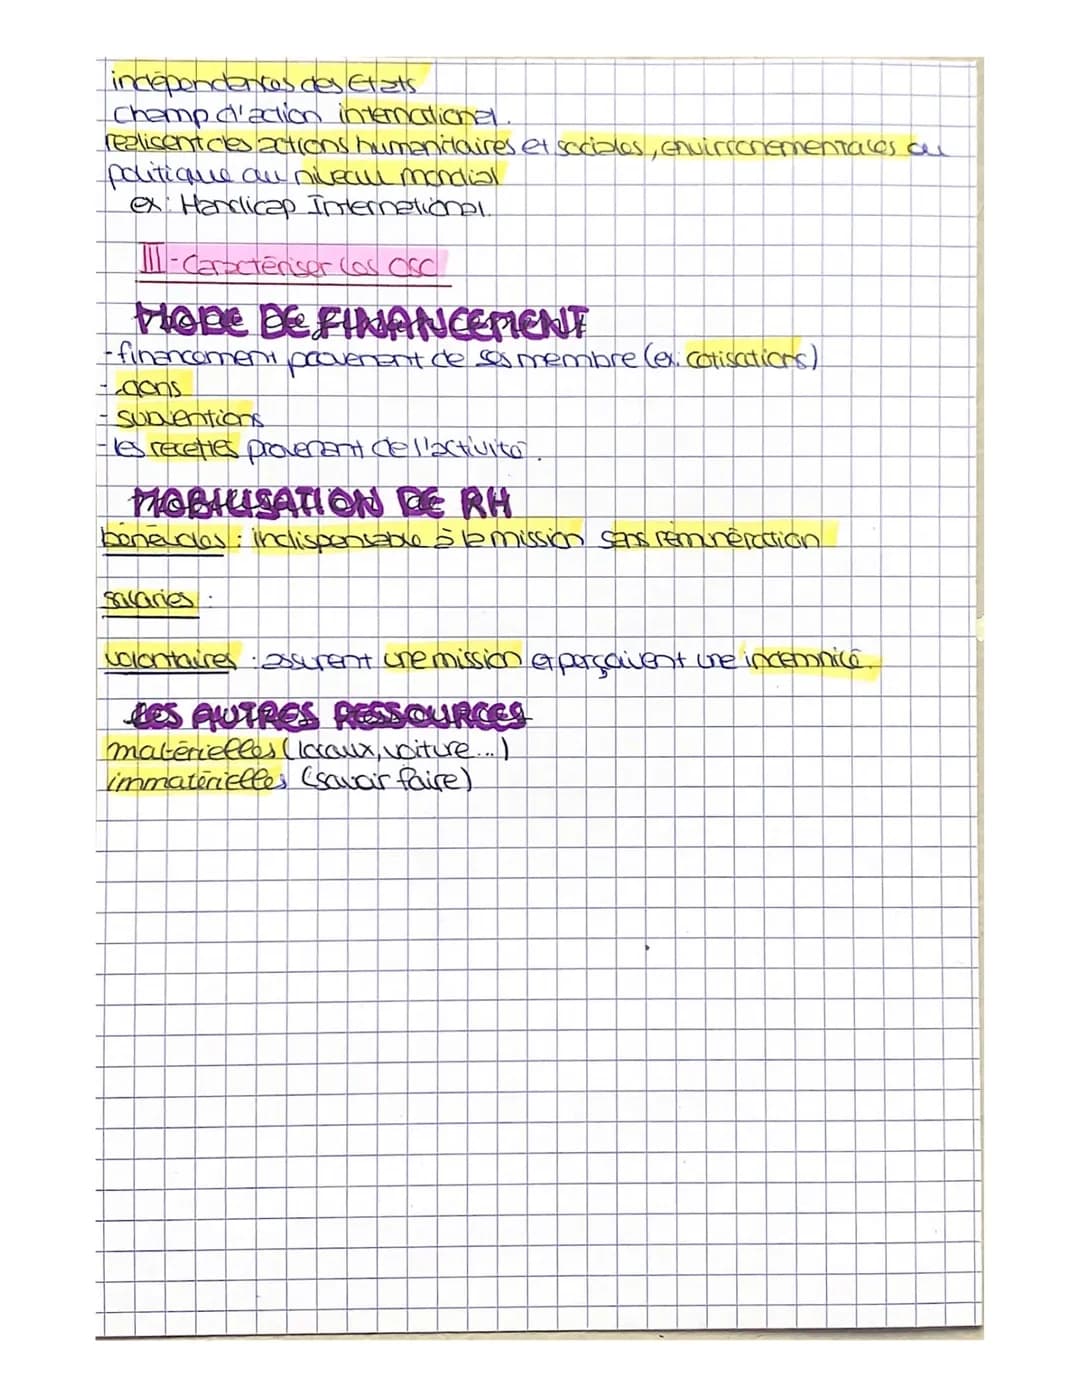 indépendantes des Etats
Champ d'action international.
réalisent des actions humanitaires et sociales, environementales ou
politique au niveau mondial
ex: Handicap International.
III-Caractériser les OSC
MODE DE FINANCEMENT
-financement provenant de ses membre (ex: cotisations)
- dons
- subventions
-les recettes provenant de l'activité.
MOBILISATION DE RH
bénévoles : indispensable à la mission sans rémunération
salariés :
volontaires : assurent une mission et perçoivent une indemnité.
LES AUTRES RESSOURCES
matérielles (locaux, voiture...)
immatérielles (savoir faire)